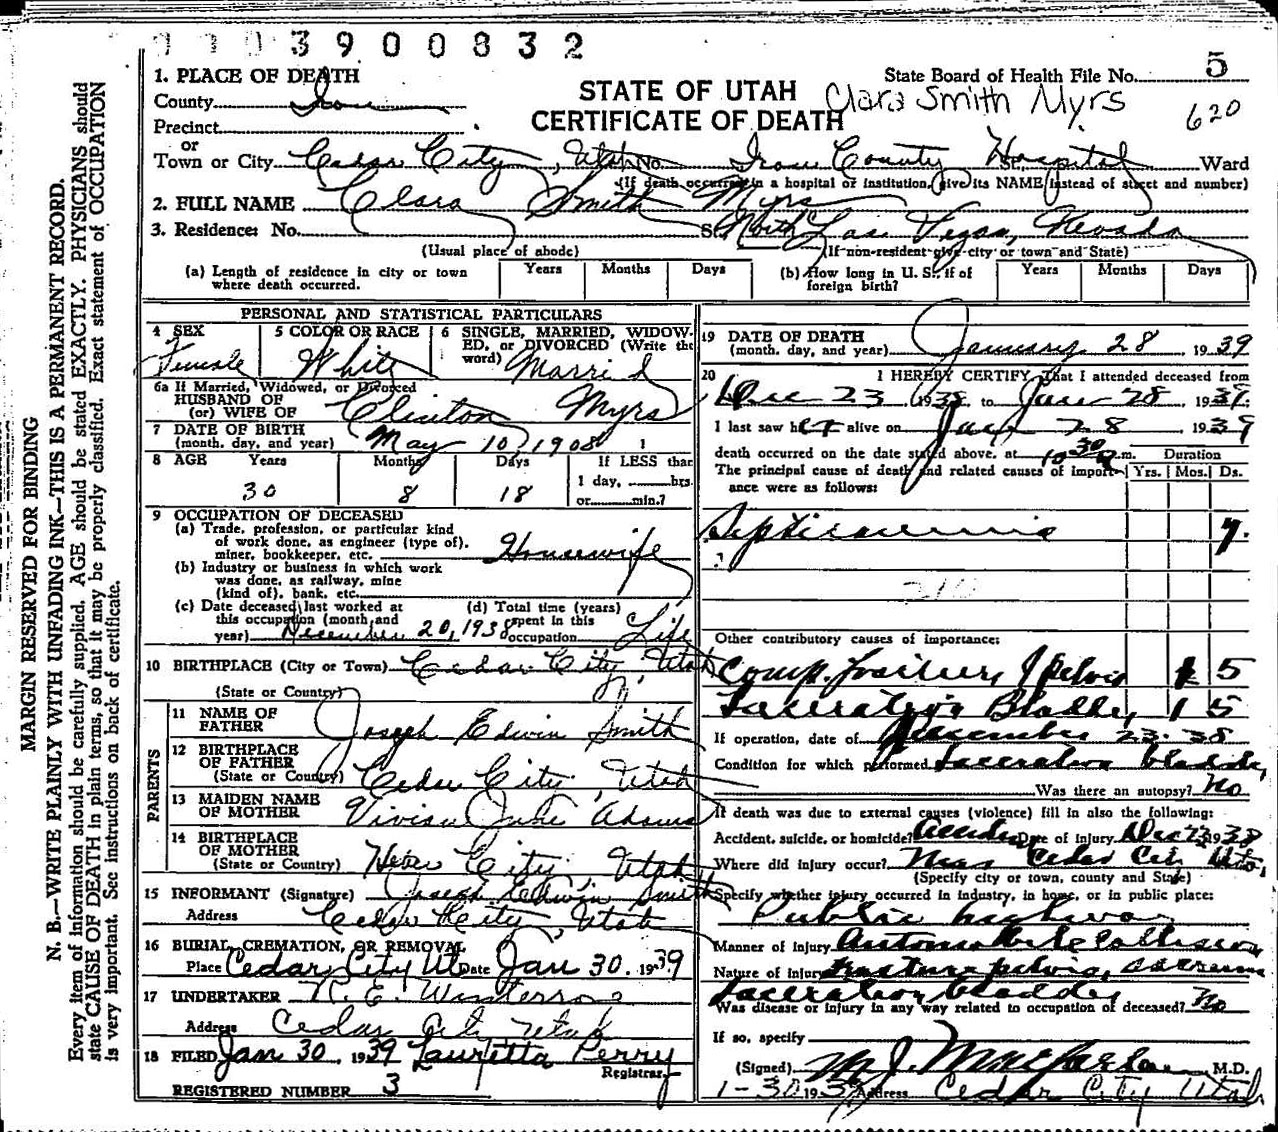 3900832
1. PLACE OF DEATH
County Iron
Precinct
or
Town or City Cedar City, Utah No. Iron County Hospital St. Ward
(If death occurred in a hospital or institution, give its NAME instead of street and number)
STATE OF UTAH
CERTIFICATE OF DEATH
State Board of Health File No. 5
Clara Smith Myrs
620
2. FULL NAME Clara Smith Myrs
3. Residence: No. St. North Las Vegas, Nevada
(Usual place of abode) (If non-resident give city or town and State)
(a) Length of residence in city or town where death occurred. Years Months Days
(b) How long in U. S., if of foreign birth? Years Months Days
PERSONAL AND STATISTICAL PARTICULARS
4 SEX Female
5 COLOR OR RACE White
6 SINGLE, MARRIED, WIDOWED, or DIVORCED (Write the word) Married
6a If Married, Widowed, or Divorced
HUSBAND OF
(or) WIFE OF Clinton Myrs
7 DATE OF BIRTH
(month, day, and year) May 10, 1908
8 AGE Years 30 Months 8 Days 18
If LESS than
1 day, hrs.
or min.?
9 OCCUPATION OF DECEASED
(a) Trade, profession, or particular kind
of work done, as engineer (type of),
miner, bookkeeper, etc. Housewife
(b) Industry or business in which work
was done, as railway, mine
(kind of), bank, etc.
(c) Date deceased last worked at
this occupation (month and
year) December 20, 1938
(d) Total time (years)
spent in this
occupation Life
10 BIRTHPLACE (City or Town) Cedar City, Utah
(State or Country)
PARENTS
11 NAME OF
FATHER Joseph Edwin Smith
12 BIRTHPLACE
OF FATHER
(State or Country) Cedar City, Utah
13 MAIDEN NAME
OF MOTHER Vivian June Adams
14 BIRTHPLACE
OF MOTHER
(State or Country) Heber City, Utah
15 INFORMANT (Signature) Joseph Edwin Smith
Address Cedar City, Utah
16 BURIAL, CREMATION, OR REMOVAL
Place Cedar City Ut Date Jan 30, 1939
17 UNDERTAKER
Address Cedar City Utah
18 FILED Jan 30, 1939 Lauretta Perry
Registrar
REGISTERED NUMBER 3
19 DATE OF DEATH
(month, day, and year) January 28 1939
20 I HEREBY CERTIFY, That I attended deceased from
Dec 23, 1938, to Jan 28, 1939.
I last saw her alive on Jan 28 1939
death occurred on the date stated above, at 10 30 a. m.
The principal cause of death and related causes of importance were as follows:
Duration
Yrs. Mos. Ds.
Septicaemia 7.
210
Other contributory causes of importance:
Comp. fracture, pelvis 1 5
Laceration Bladder, 1 5
If operation, date of December 23. 38
Condition for which performed Laceration bladder,
Was there an autopsy? No
If death was due to external causes (violence) fill in also the following:
Accident, suicide, or homicide? Accident Date of injury Dec 23 1938
Where did injury occur? Near Cedar City Utah,
(Specify city or town, county and State)
Specify whether injury occurred in industry, in home, or in public place:
Public highway
Manner of injury Automobile Collision
Nature of injury Fracture pelvis, sacrum
Laceration bladder
Was disease or injury in any way related to occupation of deceased? No
If so, specify
(Signed) M. J. Macfarlane M.D.
1-30 1939 Address Cedar City Utah
MARGIN RESERVED FOR BINDING
N. B.—WRITE PLAINLY WITH UNFADING INK—THIS IS A PERMANENT RECORD.
Every item of information should be carefully supplied. AGE should be stated EXACTLY. PHYSICIANS should
state CAUSE OF DEATH in plain terms, so that it may be properly classified. Exact statement of OCCUPATION
is very important. See instructions on back of certificate.